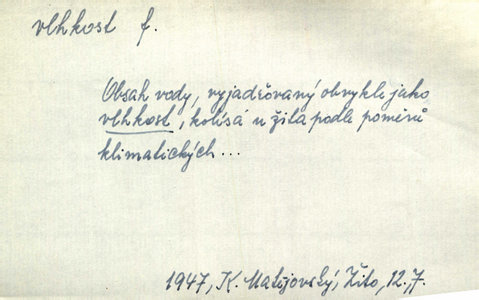 vlhkost f.
Obsah vody, vyjadřovaný obvykle jako
vlhkost, kolísá u žita podle poměrů
klimatických...
1947, K. Matějovský, Žito, 12,7.